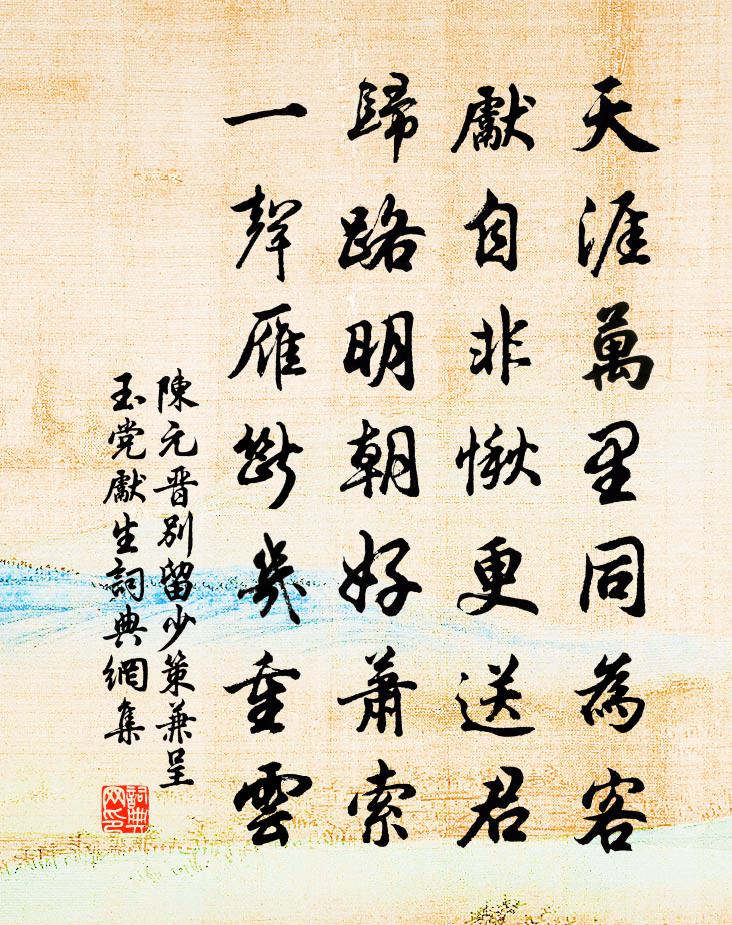 天涯萬里同為客
獻自非愀更送君
歸路明朝好蕭索
一聲雁斷幾重雲
陳元晋別留少策兼呈
玉党獻生詞典網集
詞典
网印